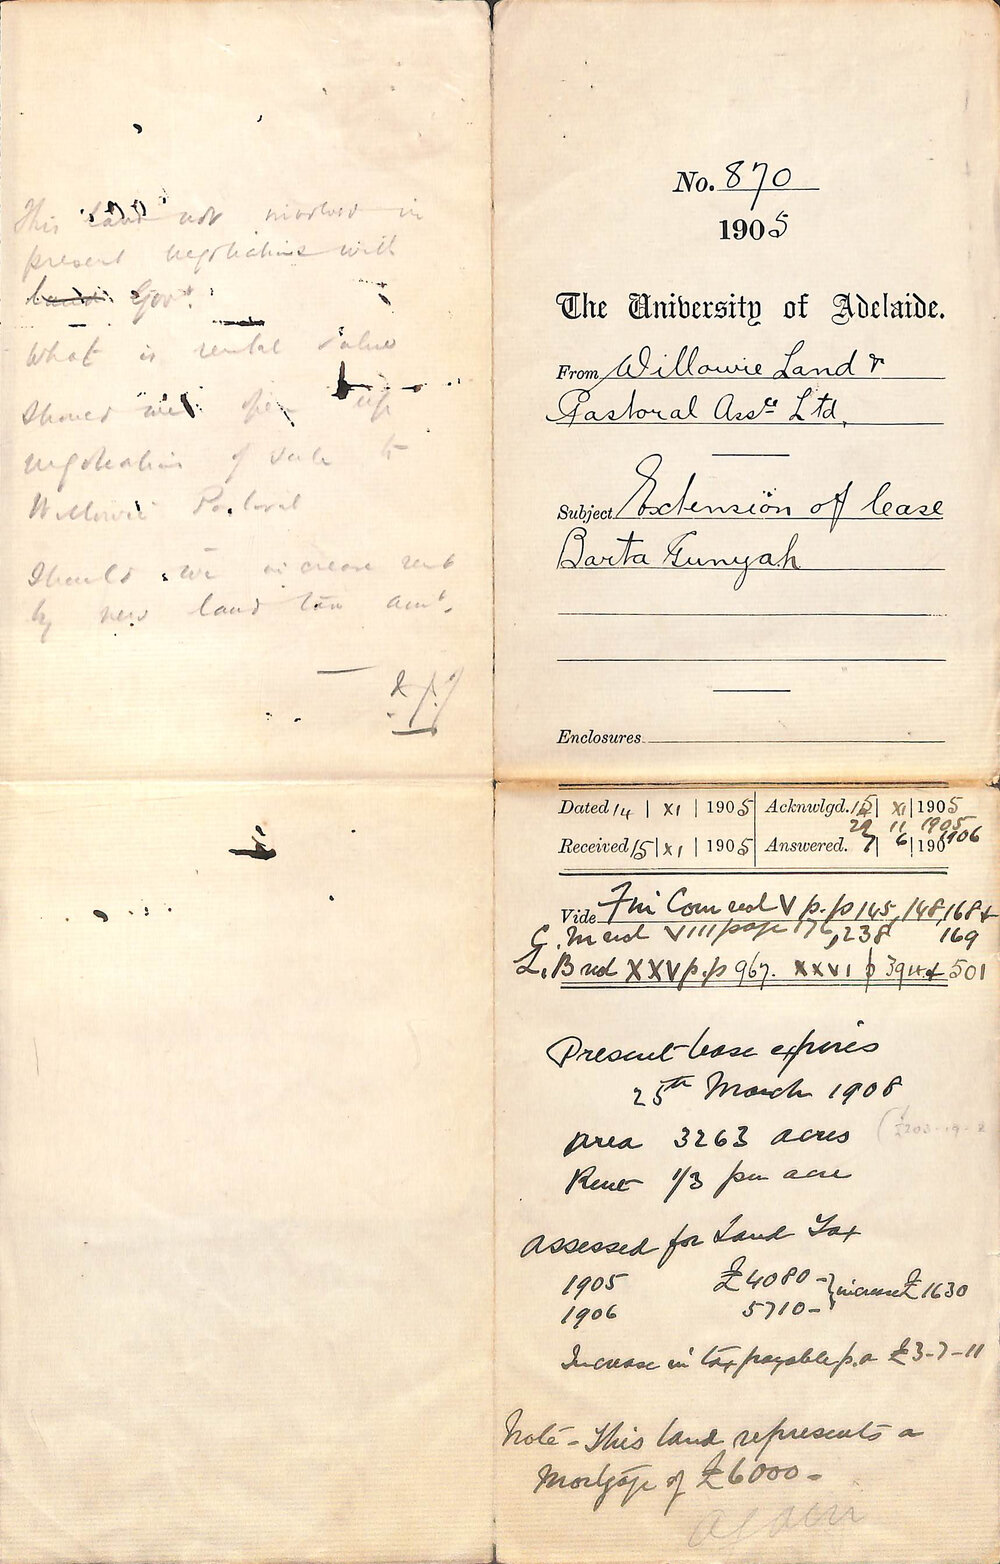 This land not involved in
present negotiations with
land Govt.
What is rental value
Should we open up
negotiation of sale to
Willowie Pastoral
Should we increase rent
by new land tax amt.
No. 870
1905
The University of Adelaide.
From Willowie Land &
Pastoral Assn Ltd.
Subject Extension of lease
Barta Gunyah
Enclosures
Dated 14 | XI | 1905 Acknwlgd. 15 | XI | 1905
29 11 1905
Received 15 | XI | 1905 Answered. 7 | 6 | 1906
Vide Fin Com red V p.p 145, 148, 168 +
C. M red VIII page 176, 238 169
L. B red XXV p.p 967. XXVI p 394 + 501
Present lease expires
25th March 1908
Area 3263 acres
Rent 1/3 per acre
Assessed for Land Tax
1905 £4080 - } increase £1630
1906 5710 -
Increase in tax payable p.a £3-7-11
Note - This land represents a
Mortgage of £6000 -